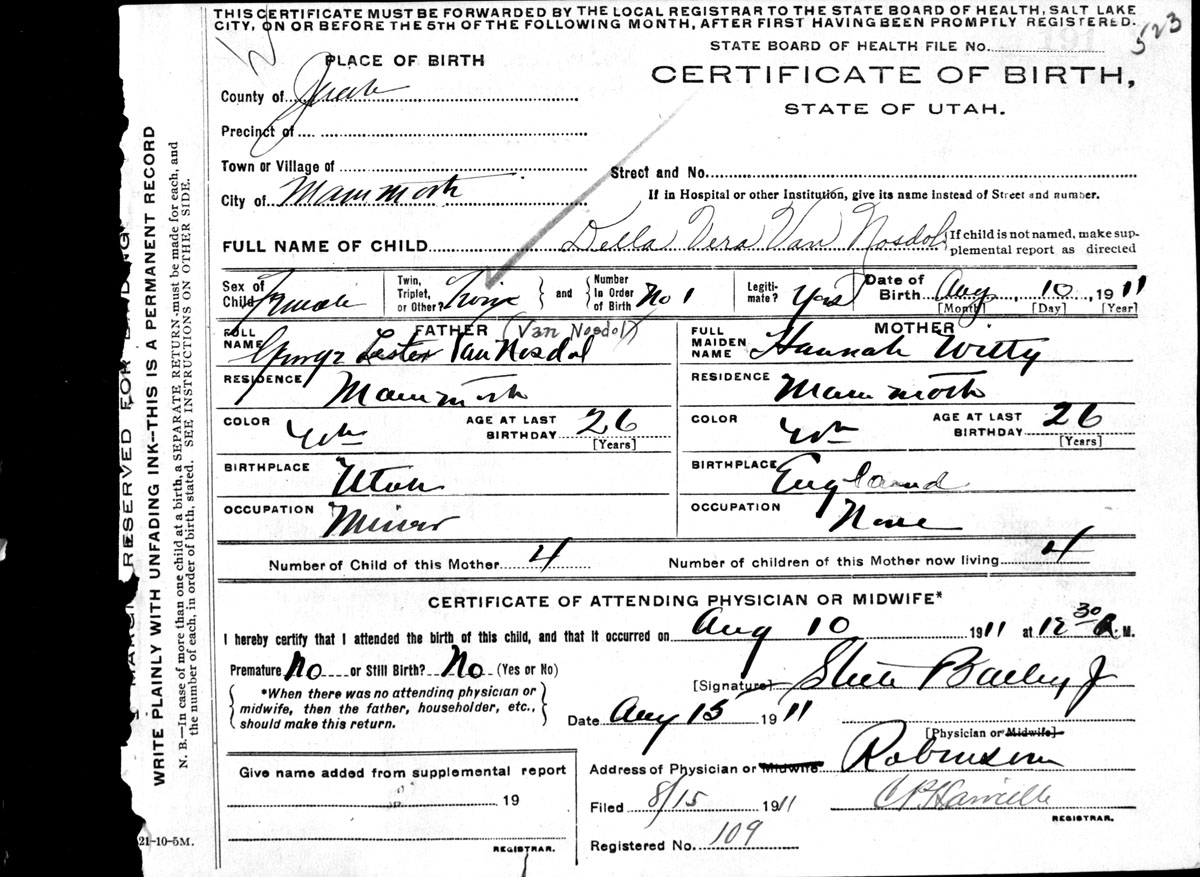 THIS CERTIFICATE MUST BE FORWARDED BY THE LOCAL REGISTRAR TO THE STATE BOARD OF HEALTH, SALT LAKE
CITY, ON OR BEFORE THE 5TH OF THE FOLLOWING MONTH, AFTER FIRST HAVING BEEN PROMPTLY REGISTERED.
523
STATE BOARD OF HEALTH FILE No.
PLACE OF BIRTH
CERTIFICATE OF BIRTH,
STATE OF UTAH.
County of Juab
Precinct of
Town or Village of
Street and No.
City of Mammoth
If in Hospital or other Institution, give its name instead of Street and number.
FULL NAME OF CHILD Della Vera Van Nosdol
If child is not named, make sup-
plemental report as directed
Sex of Child Female Twin, Triplet, or Other? Twins and Number In Order of Birth No 1 Legiti- mate? Yes Date of Birth Aug 10, 1911
[Month] [Day] [Year]
FATHER (Van Nosdol) MOTHER
FULL NAME George Lester Van Nosdol FULL MAIDEN NAME Hannah Witty
RESIDENCE Mammoth RESIDENCE Mammoth
COLOR Wh AGE AT LAST BIRTHDAY 26 [Years] COLOR Wh AGE AT LAST BIRTHDAY 26 [Years]
BIRTHPLACE Utah BIRTHPLACE England
OCCUPATION Miner OCCUPATION None
Number of Child of this Mother 4 Number of children of this Mother now living 4
CERTIFICATE OF ATTENDING PHYSICIAN OR MIDWIFE*
I hereby certify that I attended the birth of this child, and that it occurred on Aug 10 1911 at 12 30 A. M.
Premature No or Still Birth? No (Yes or No)
*When there was no attending physician or
midwife, then the father, householder, etc.,
should make this return.
[Signature] Bailey, Jr
Date Aug 15 1911
[Physician or Midwife]
Give name added from supplemental report
19
REGISTRAR.
Address of Physician or Midwife Robinson
Filed 8/15 1911
REGISTRAR.
Registered No. 109
21-10-5M.
RESERVED FOR BINDING
WRITE PLAINLY WITH UNFADING INK--THIS IS A PERMANENT RECORD
N. B.—In case of more than one child at a birth, a SEPARATE RETURN must be made for each, and
the number of each, in order of birth, stated. SEE INSTRUCTIONS ON OTHER SIDE.